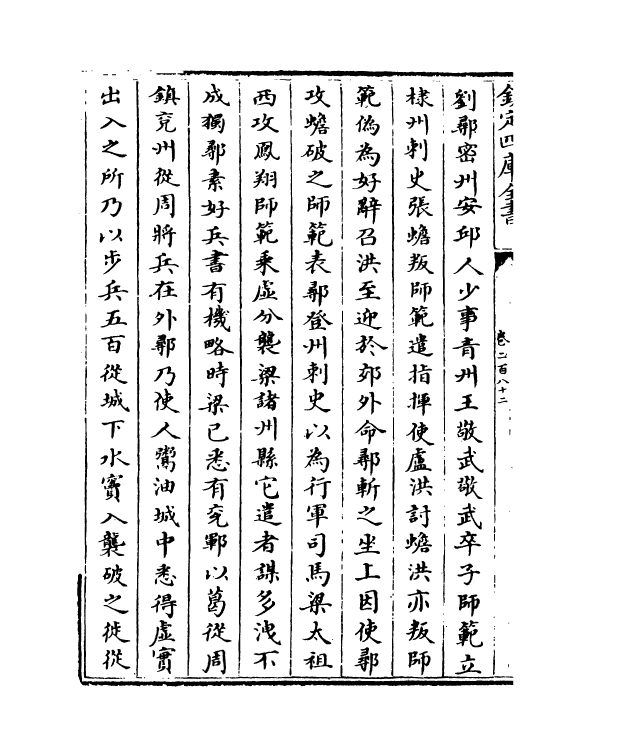 欽定四庫全書
卷二百八十二
劉鄩密州安邱人少事青州王敬武敬武卒子師範立
棣州刺史張蟾叛師範遣指揮使盧洪討蟾洪亦叛師
範偽為好辭召洪至迎於郊外命鄩斬之坐上因使鄩
攻蟾破之師範表鄩登州刺史以為行軍司馬梁太祖
西攻鳳翔師範乘虛分襲梁諸州縣它遣者謀多洩不
成獨鄩素好兵書有機略時梁已悉有兖鄆以葛從周
鎮兖州從周將兵在外鄩乃使人鬻油城中悉得虛實
出入之所乃以步兵五百從城下水竇入襲破之徙從